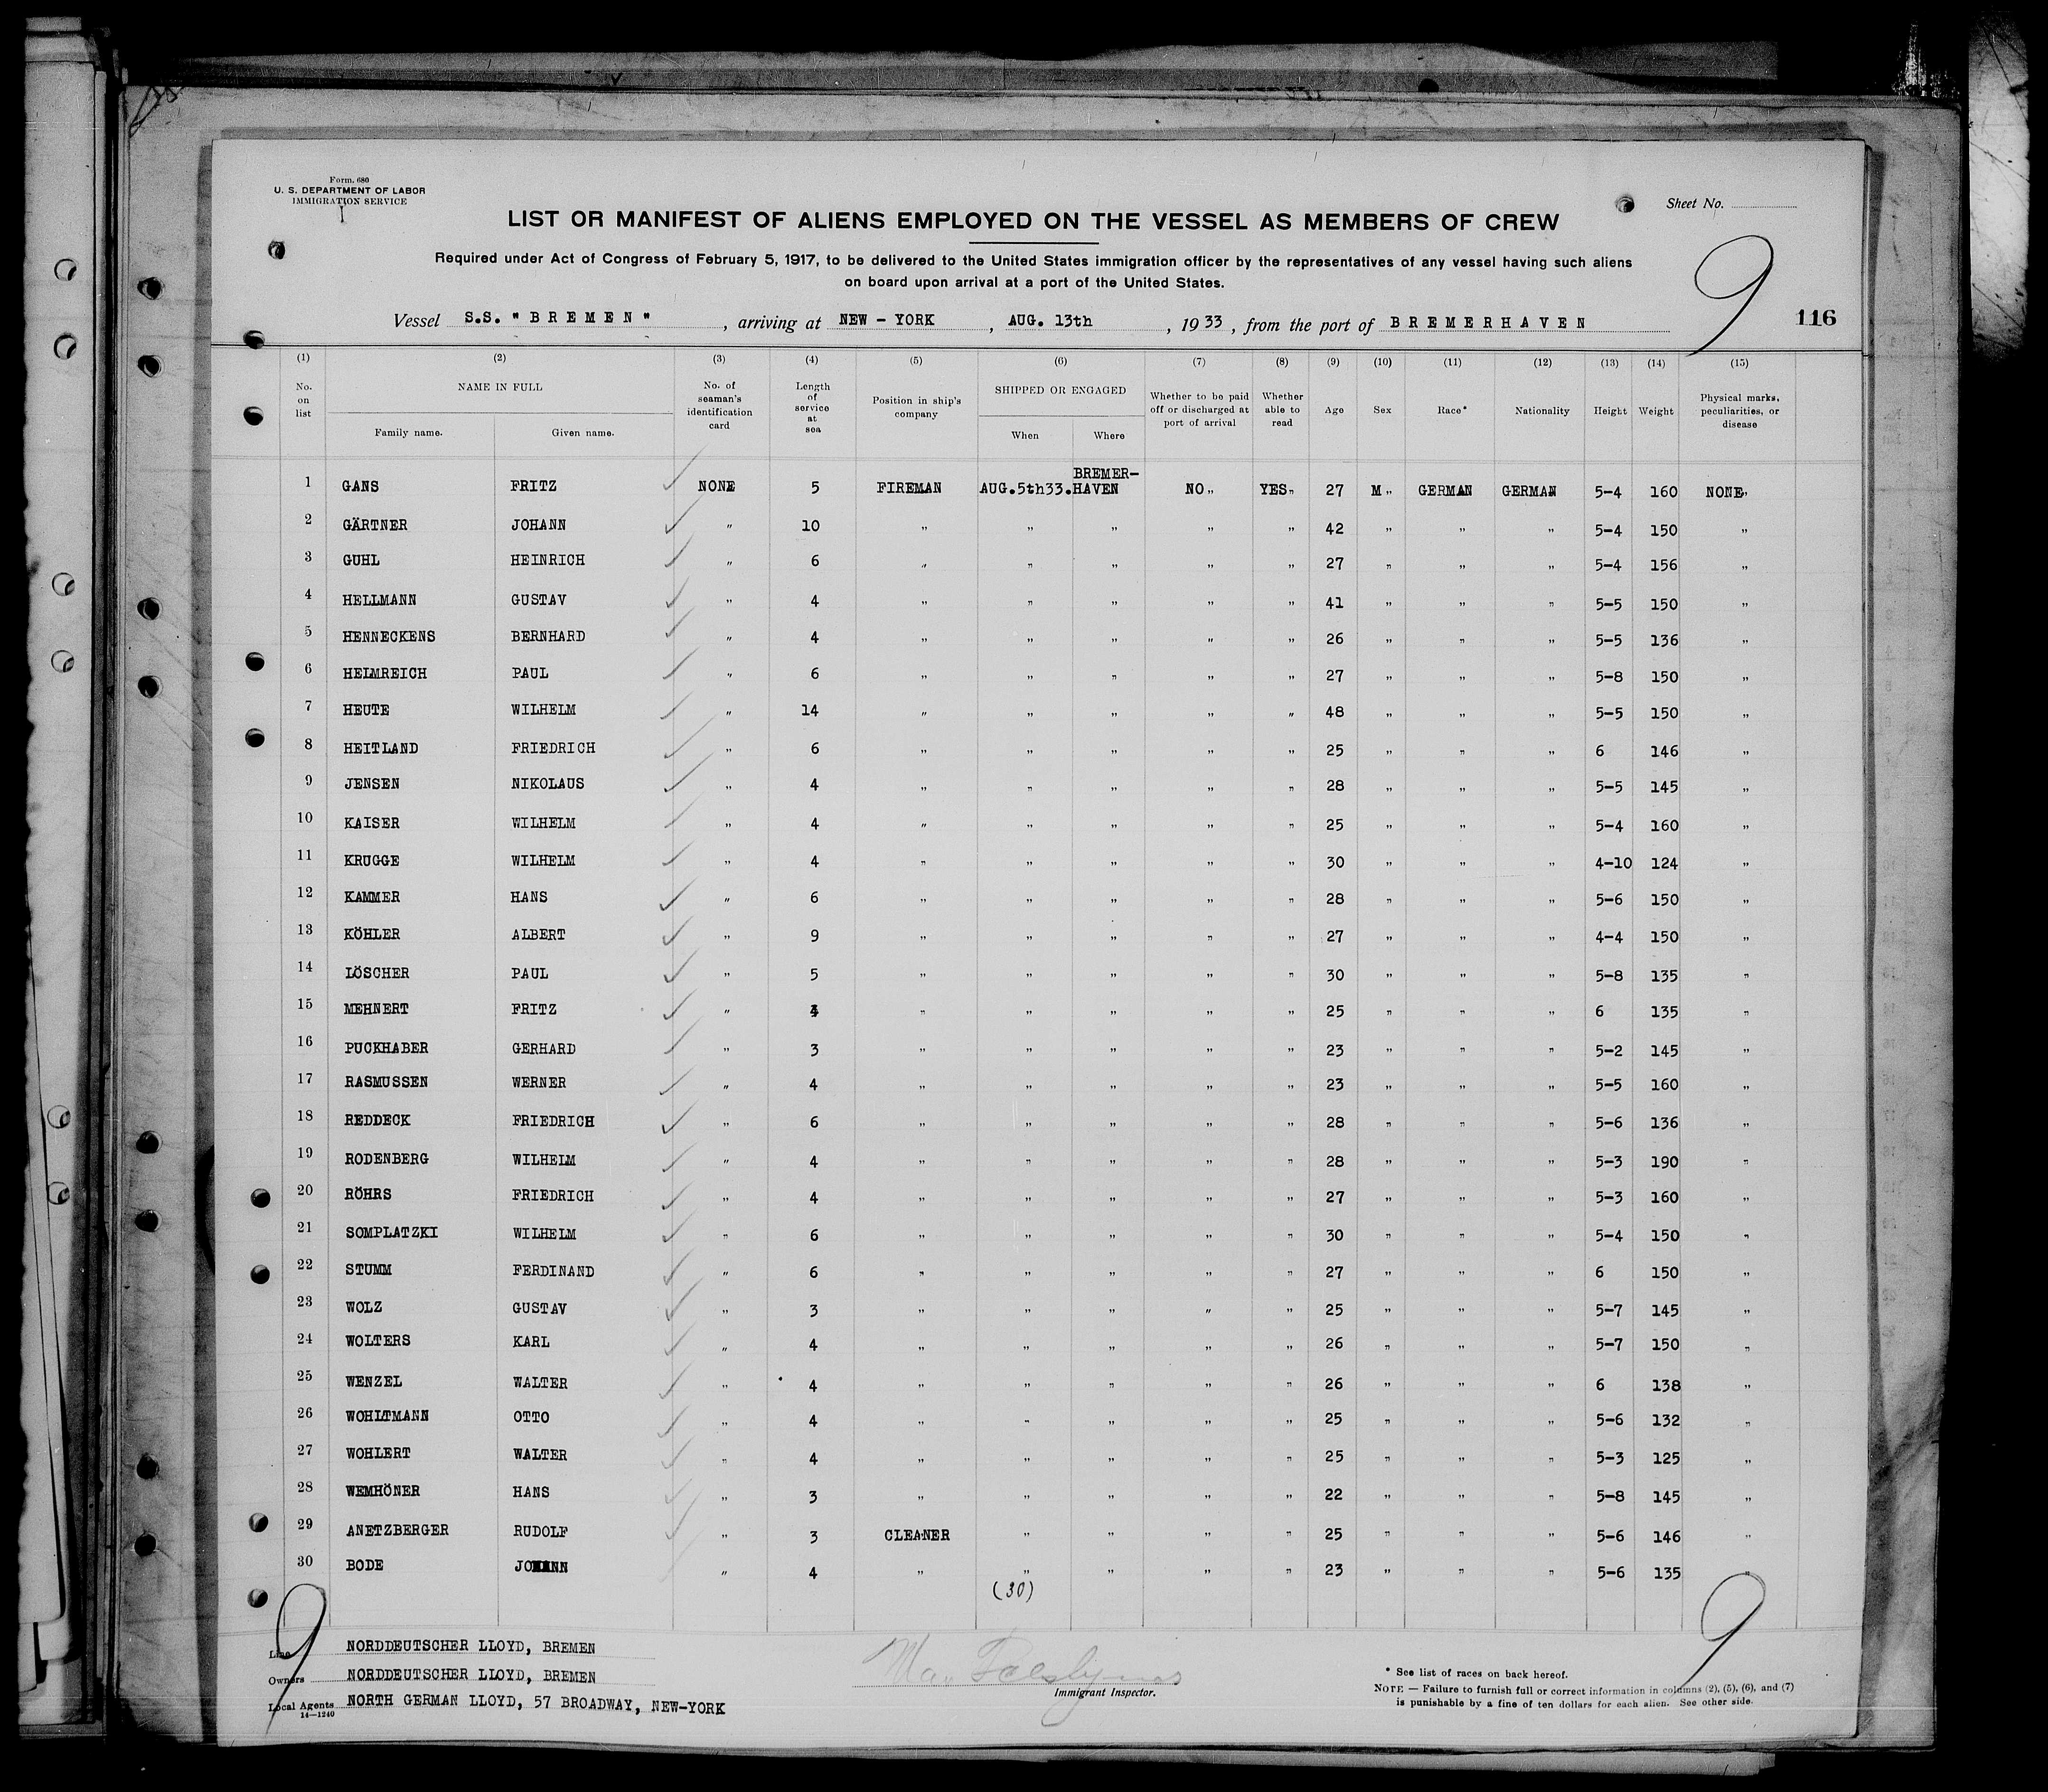 Form. 680
U. S. DEPARTMENT OF LABOR
IMMIGRATION SERVICE
Sheet No.
LIST OR MANIFEST OF ALIENS EMPLOYED ON THE VESSEL AS MEMBERS OF CREW
Required under Act of Congress of February 5, 1917, to be delivered to the United States immigration officer by the representatives of any vessel having such aliens
on board upon arrival at a port of the United States.
9
Vessel S.S. "BREMEN", arriving at NEW-YORK, AUG. 13th, 1933, from the port of BREMERHAVEN
116
(1) (2) (3) (4) (5) (6) (7) (8) (9) (10) (11) (12) (13) (14) (15)
No. on list NAME IN FULL Family name. Given name. No. of seaman's identification card Length of service at sea Position in ship's company SHIPPED OR ENGAGED When Where Whether to be paid off or discharged at port of arrival Whether able to read Age Sex Race* Nationality Height Weight Physical marks, peculiarities, or disease
1 GANS FRITZ NONE 5 FIREMAN AUG.5th33. BREMER-HAVEN NO„ YES„ 27 M„ GERMAN GERMAN 5-4 160 NONE„
2 GÄRTNER JOHANN „ 10 „ „ „ „ „ 42 „ „ „ 5-4 150 „
3 GUHL HEINRICH „ 6 „ „ „ „ „ 27 „ „ „ 5-4 156 „
4 HELLMANN GUSTAV „ 4 „ „ „ „ „ 41 „ „ „ 5-5 150 „
5 HENNECKENS BERNHARD „ 4 „ „ „ „ „ 26 „ „ „ 5-5 136 „
6 HELMREICH PAUL „ 6 „ „ „ „ „ 27 „ „ „ 5-8 150 „
7 HEUTE WILHELM „ 14 „ „ „ „ „ 48 „ „ „ 5-5 150 „
8 HEITLAND FRIEDRICH „ 6 „ „ „ „ „ 25 „ „ „ 6 146 „
9 JENSEN NIKOLAUS „ 4 „ „ „ „ „ 28 „ „ „ 5-5 145 „
10 KAISER WILHELM „ 4 „ „ „ „ „ 25 „ „ „ 5-4 160 „
11 KRUGGE WILHELM „ 4 „ „ „ „ „ 30 „ „ „ 4-10 124 „
12 KAMMER HANS „ 6 „ „ „ „ „ 28 „ „ „ 5-6 150 „
13 KÖHLER ALBERT „ 9 „ „ „ „ „ 27 „ „ „ 4-4 150 „
14 LÖSCHER PAUL „ 5 „ „ „ „ „ 30 „ „ „ 5-8 135 „
15 MEHNERT FRITZ „ 4 „ „ „ „ „ 25 „ „ „ 6 135 „
16 PUCKHABER GERHARD „ 3 „ „ „ „ „ 23 „ „ „ 5-2 145 „
17 RASMUSSEN WERNER „ 4 „ „ „ „ „ 23 „ „ „ 5-5 160 „
18 REDDECK FRIEDRICH „ 6 „ „ „ „ „ 28 „ „ „ 5-6 136 „
19 RODENBERG WILHELM „ 4 „ „ „ „ „ 28 „ „ „ 5-3 190 „
20 RÖHRS FRIEDRICH „ 4 „ „ „ „ „ 27 „ „ „ 5-3 160 „
21 SOMPLATZKI WILHELM „ 6 „ „ „ „ „ 30 „ „ „ 5-4 150 „
22 STUMM FERDINAND „ 6 „ „ „ „ „ 27 „ „ „ 6 150 „
23 WOLZ GUSTAV „ 3 „ „ „ „ „ 25 „ „ „ 5-7 145 „
24 WOLTERS KARL „ 4 „ „ „ „ „ 26 „ „ „ 5-7 150 „
25 WENZEL WALTER „ 4 „ „ „ „ „ 26 „ „ „ 6 138 „
26 WOHLTMANN OTTO „ 4 „ „ „ „ „ 25 „ „ „ 5-6 132 „
27 WOHLERT WALTER „ 4 „ „ „ „ „ 25 „ „ „ 5-3 125 „
28 WEMHÖNER HANS „ 3 „ „ „ „ „ 22 „ „ „ 5-8 145 „
29 ANETZBERGER RUDOLF „ 3 CLEANER „ „ „ „ 25 „ „ „ 5-6 146 „
30 BODE JOHANN „ 4 „ „ „ „ „ 23 „ „ „ 5-6 135 „
(30)
9
9
Line NORDDEUTSCHER LLOYD, BREMEN
Owners NORDDEUTSCHER LLOYD, BREMEN
Local Agents NORTH GERMAN LLOYD, 57 BROADWAY, NEW-YORK
14—1240
Immigrant Inspector.
* See list of races on back hereof.
NOTE.—Failure to furnish full or correct information in columns (2), (5), (6), and (7)
is punishable by a fine of ten dollars for each alien. See other side.